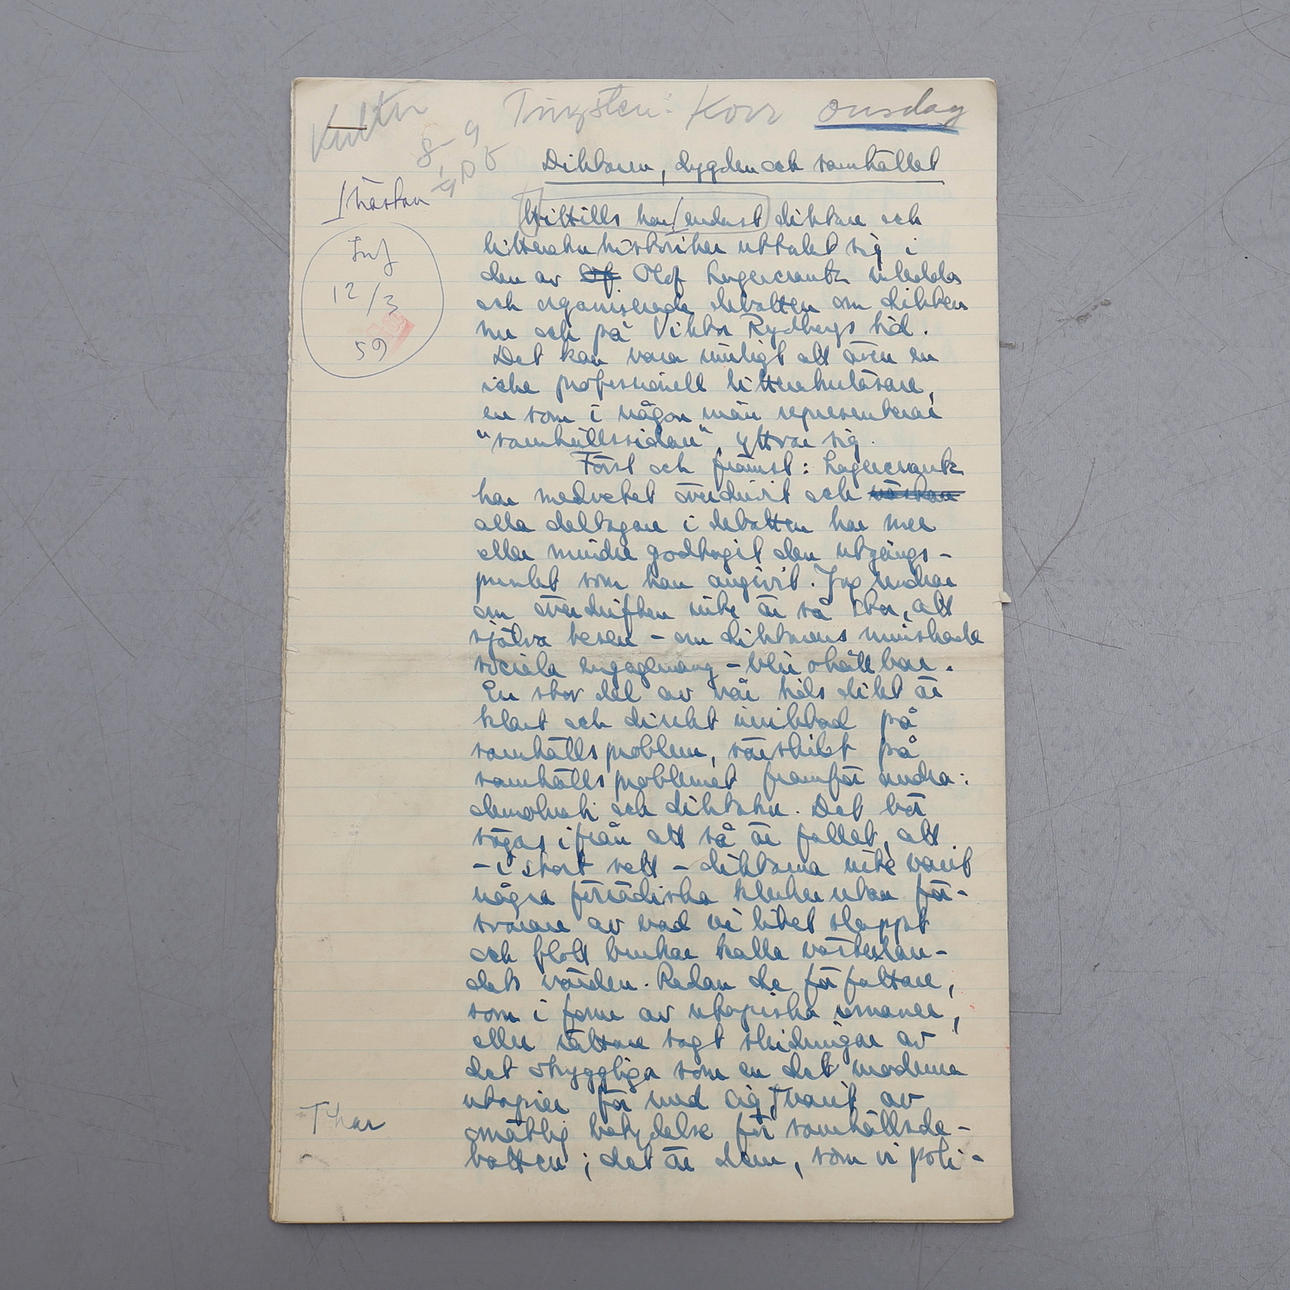 Kultur
Tingsten: Korr onsdag
8-9
Diktaren, dygden och samhället
Hittills har endast diktare och
litteraturhistoriker uttalat sig i
den av Of Olof Lagercrantz inledda
och organiserade debatten om dikten
nu och på Viktor Rydbergs tid.
Det kan vara rimligt att även en
icke professionell litteraturläsare,
en som i någon mån representerar
"samhällssidan", yttrar sig.
Först och främst: Lagercrantz
har medvetet överdrivit och nästan
alla deltagare i debatten har mer
eller mindre godtagit den utgångs-
punkt som han angivit. Jag undrar
om överdriften inte är så stor, att
själva tesen – om diktarens minskade
sociala engagemang – blir ohållbar.
En stor del av vår tids dikt är
klart och direkt inriktad på
samhällsproblem, särskilt på
samhällsproblemet framför andra:
demokrati och diktatur. Det bör
sägas ifrån att så är fallet, att
– i stort sett – diktarna inte varit
några förrädiska klerker utan för-
svarare av vad vi litet slappt
och flott brukar kalla västerlan-
dets värden. Redan de författare,
som i form av utopiska romaner,
eller rättare sagt skildringar av
det skyggliga som en det moderna
utopier för med sig, varit av
omätlig betydelse för samhällsde-
batten; det är dem, som vi poli-
Inf
12/3
59
T har